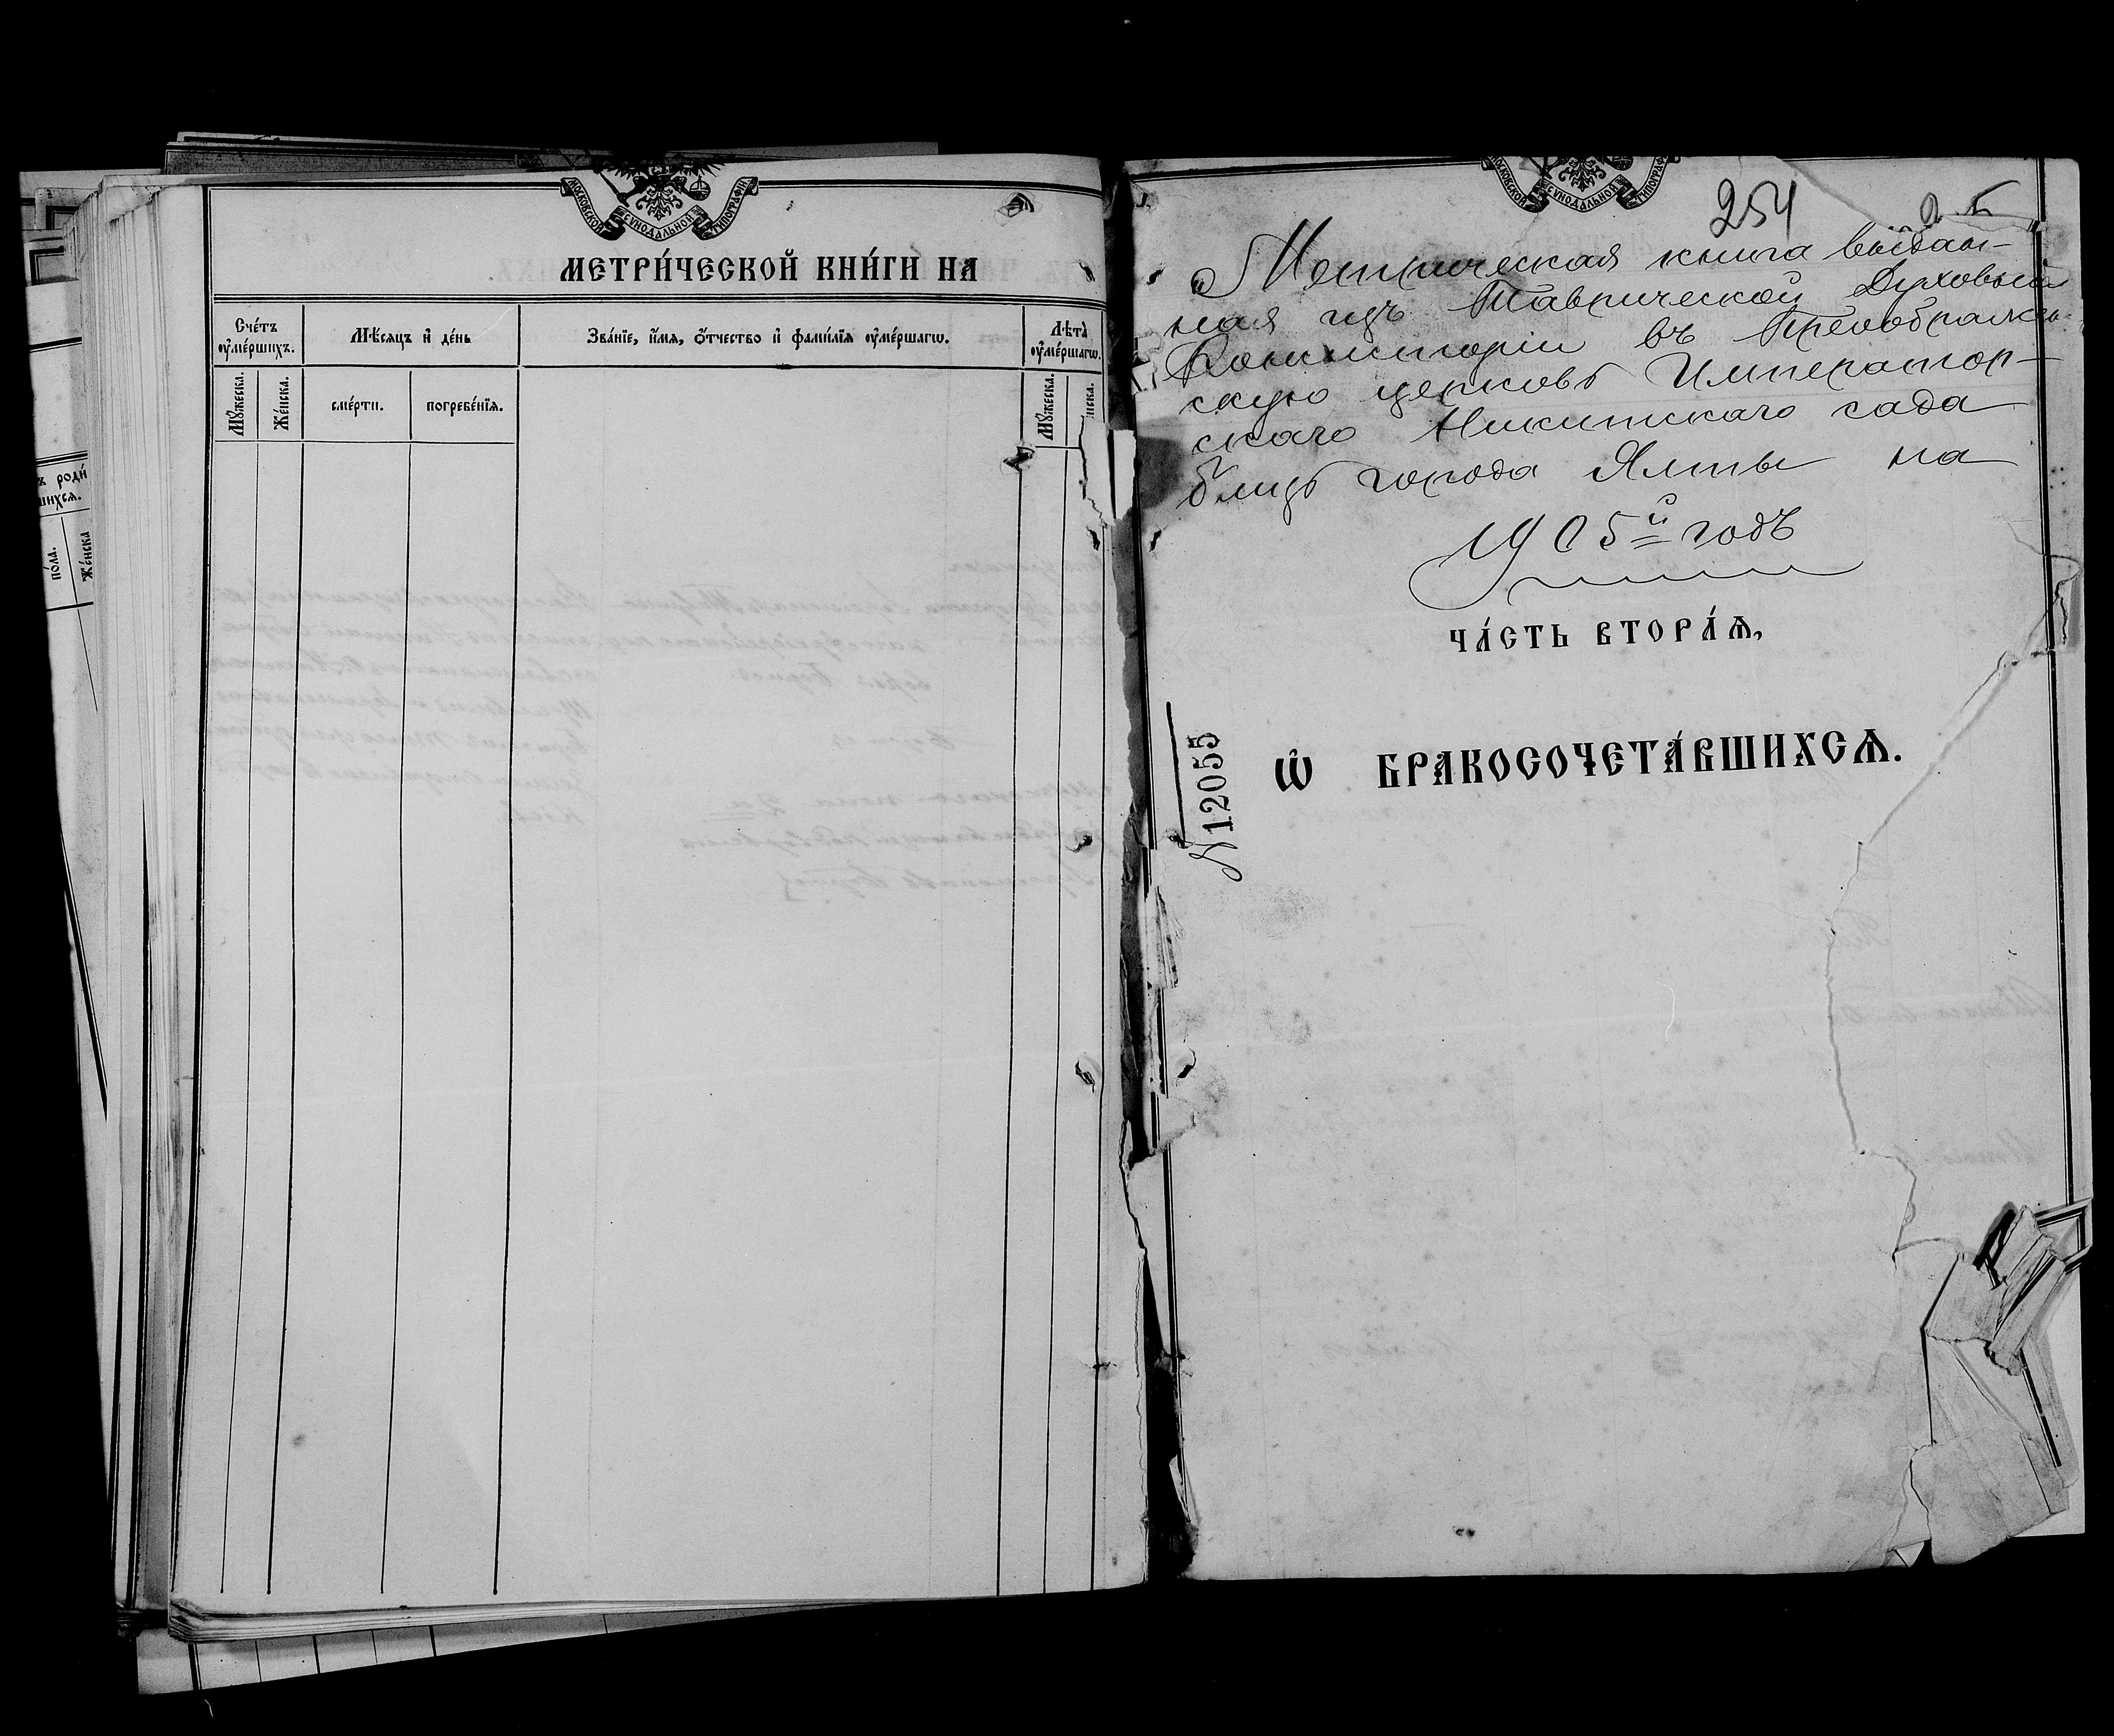 МОСКОВСКОЙ СѴНОДАЛЬНОЙ ТИПОГРАФІИ
МЕТРИ́ЧЕСКОЙ КНИ́ГИ НА
Сче́тъ ᲂу҆ме́ршихъ.
Мѣ́сяцъ и҆ де́нь
Зва́нїе, и҆́мѧ, ѻ҆́тчество и҆ фами́лїѧ ᲂу҆ме́ршагѡ.
Лѣ́та ᲂу҆ме́ршагѡ.
Мꙋ́жеска.
Же́нска.
сме́рти.
погребе́нїѧ.
Мꙋ́жеска.
нска.
ъ роди́
шихсѧ.
по́ла.
Же́нска
МОСКОВСКОЙ СѴНОДАЛЬНОЙ ТИПОГРАФІИ
254
„Метрическая книга выдан-
ная изъ Таврической Духовной
Консисторіи въ Преображен-
скую церковь Император-
скаго Никитскаго сада
близъ города Ялты на
1905й годъ
ЧА́СТЬ ВТОРА́Ѧ,
Ѡ҆ БРАКОСОЧЕТА́ВШИХСѦ.
№12055